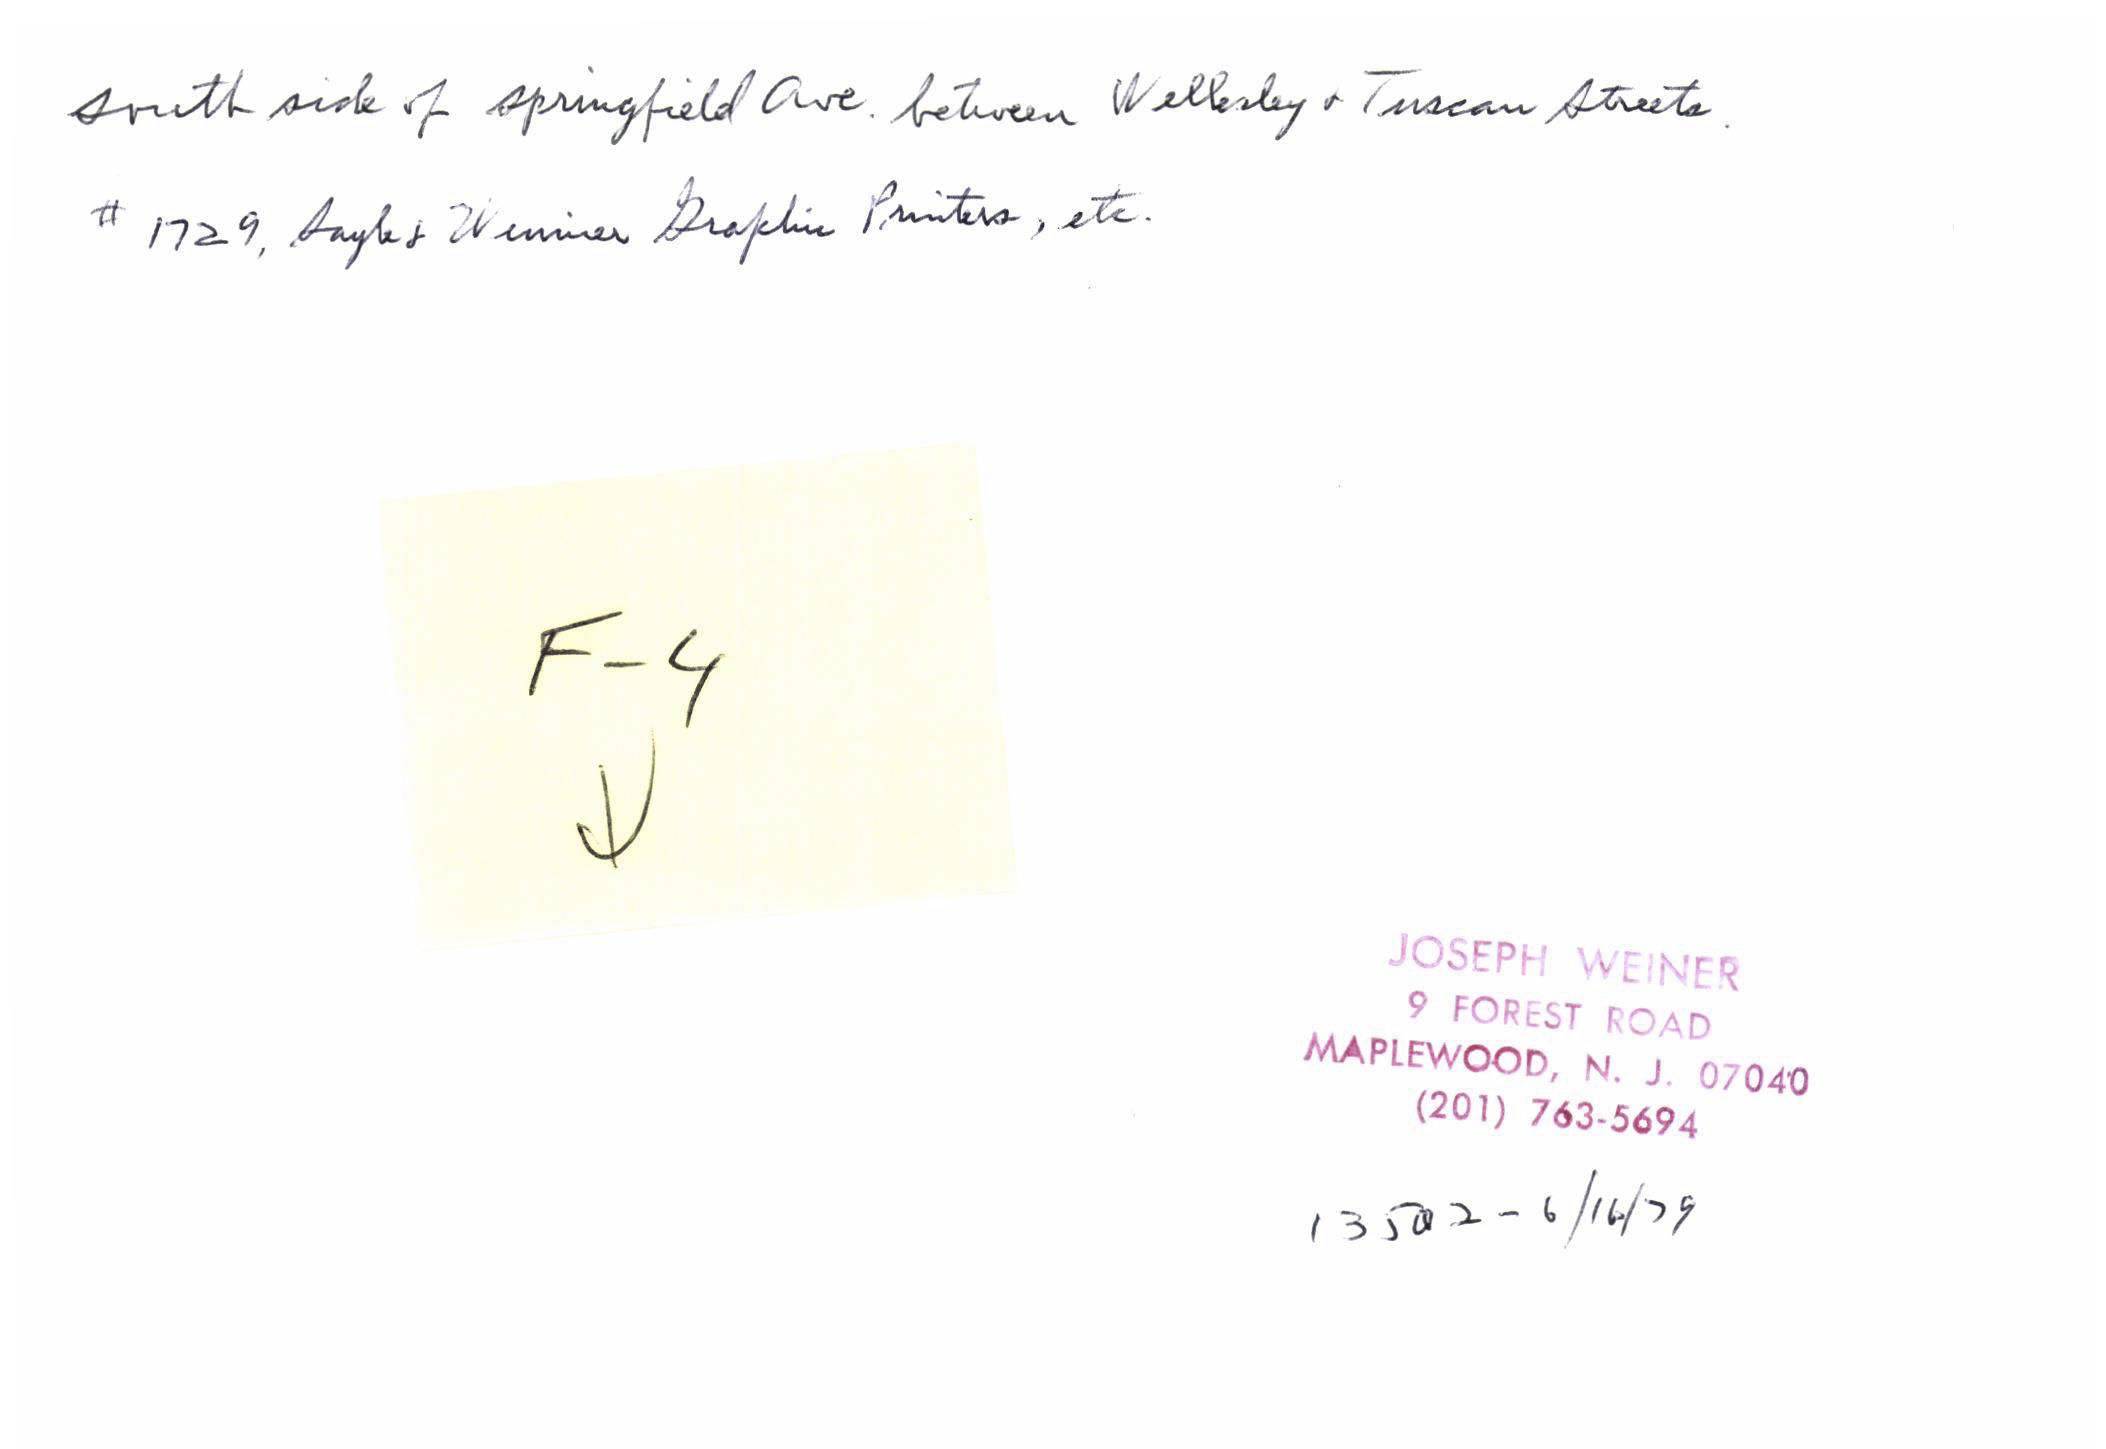 south side of springfield Ave. between Wellesley & Tuscan Streets.
# 1729, & Graphic Printers, etc.
F-4
JOSEPH WEINER
9 FOREST ROAD
MAPLEWOOD, N. J. 07040
(201) 763-5694
13502 - 6/16/79